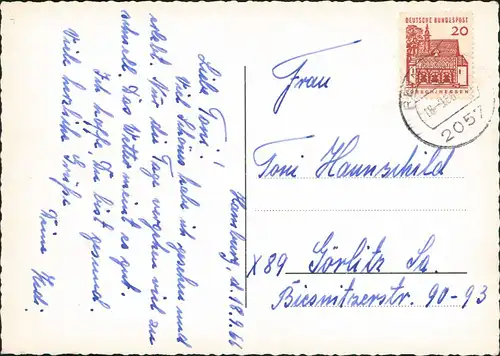 Hamburg, d. 18.9.66
Liebe Toni!
Viel Schönes habe ich gesehen und
erlebt. Nur die Tage vergehen viel zu
schnell. Das Wetter meint es gut.
Ich hoffe, Du bist gesund.
Viele herzliche Grüße
Deine
Frau
Toni Haunschild
X 89 Görlitz Sa.
Biesnitzerstr. 90-93
DEUTSCHE BUNDESPOST
20
LORSCH/HESSEN
2057